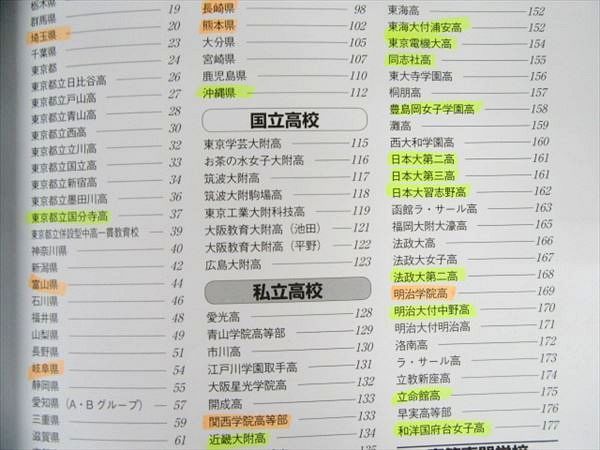 栃木県 19
群馬県 20
埼玉県 23
千葉県 24
東京都 26
東京都立日比谷高 27
東京都立戸山高 28
東京都立青山高 30
東京都立西高 32
東京都立立川高 33
東京都立国立高 34
東京都立新宿高 36
東京都立墨田川高 37
東京都立国分寺高 39
東京都立併設型中高一貫教育校 40
神奈川県 42
新潟県 44
富山県 46
石川県 48
福井県 49
山梨県 51
長野県 54
岐阜県 55
静岡県 57
愛知県（A・Bグループ） 59
三重県 61
滋賀県
長崎県 98
熊本県 102
大分県 105
宮崎県 107
鹿児島県 110
沖縄県 112
国立高校
東京学芸大附高 115
お茶の水女子大附高 116
筑波大附高 117
筑波大附駒場高 118
東京工業大附科技高 119
大阪教育大附高（池田） 121
大阪教育大附高（平野） 122
広島大附高 123
私立高校
愛光高 128
青山学院高等部 129
市川高 130
江戸川学園取手高 131
大阪星光学院高 132
開成高 133
関西学院高等部 133
近畿大附高 134
135
東海高 152
東海大付浦安高 152
東京電機大高 154
同志社高 155
東大寺学園高 156
桐朋高 157
豊島岡女子学園高 158
灘高 159
西大和学園高 160
日本大第二高 161
日本大第三高 161
日本大習志野高 162
函館ラ・サール高 163
福岡大附大濠高 165
法政大高 166
法政大女子高 167
法政大第二高 168
明治学院高 169
明治大付中野高 170
明治大付明治高 171
洛南高 172
ラ・サール高 173
立教新座高 174
立命館高 175
早実高等部 176
和洋国府台女子高 177